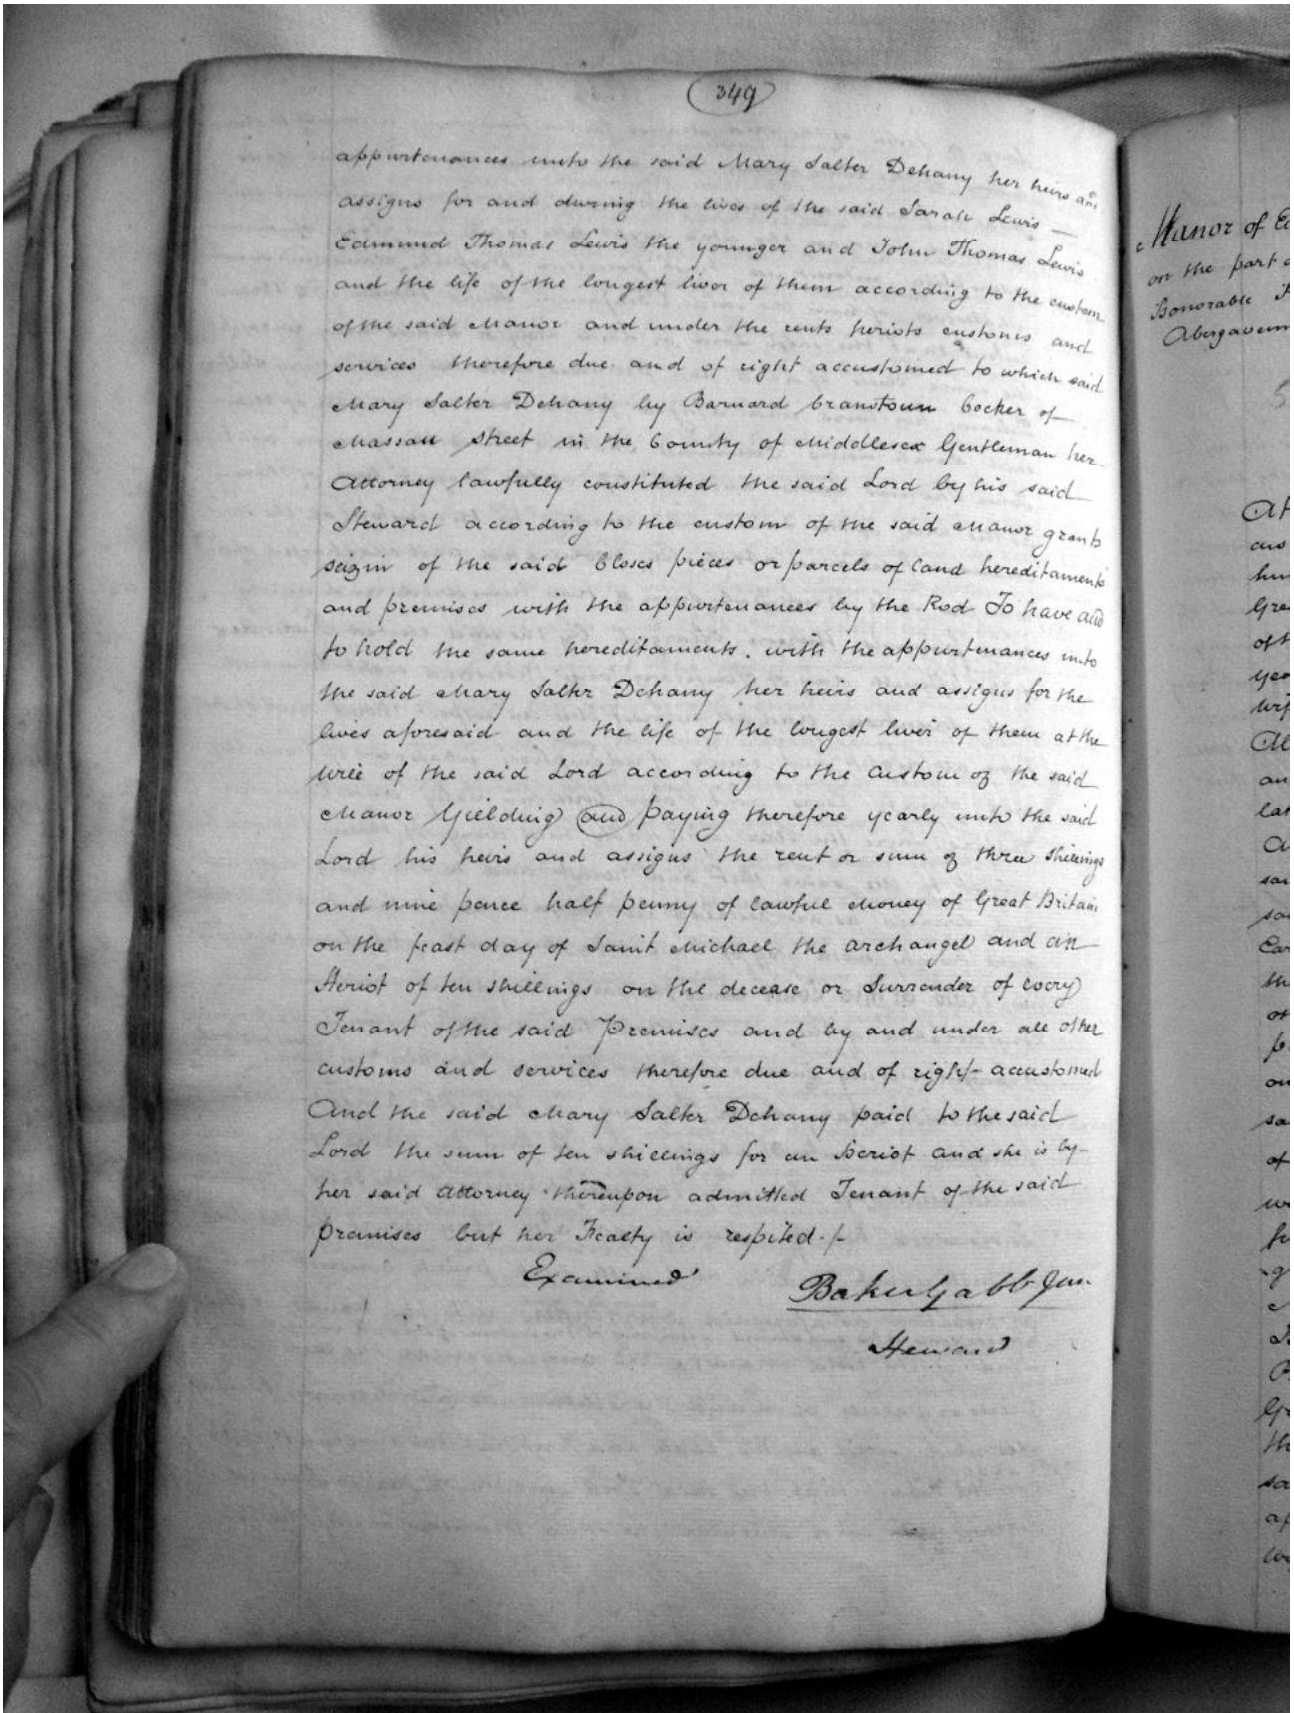 349
appurtenances unto the said Mary Salter Dehany her heirs and
assigns for and during the lives of the said Sarah Lewis —
Edmund Thomas Lewis the younger and John Thomas Lewis
and the life of the longest livor of them according to the custom
of the said Manor and under the rents heriots customs and
services therefore due and of right accustomed to which said
Mary Salter Dehany by Barnard Cranstoun Cocker of
Nassau Street in the County of Middlesex Gentleman her
Attorney lawfully constituted the said Lord by his said
Steward according to the custom of the said Manor grants
seizin of the said Closes pieces or parcels of land hereditaments
and premises with the appurtenances by the Rod To have and
to hold the same hereditaments with the appurtenances unto
the said Mary Salter Dehany her heirs and assigns for the
lives aforesaid and the life of the longest liver of them at the
will of the said Lord according to the Custom of the said
Manor Yielding and paying therefore yearly unto the said
Lord his heirs and assigns the rent or sum of three shillings
and nine pence half penny of lawful Money of Great Britain
on the feast day of Saint Michael the archangel and an
Heriot of ten shillings on the decease or Surrender of every
Tenant of the said Premises and by and under all other
customs and services therefore due and of right accustomed
And the said Mary Salter Dehany paid to the said
Lord the sum of ten shillings for an Heriot and she is by
her said Attorney thereupon admitted Tenant of the said
premises but her Fealty is respited ./-
Examined
Baker Gabb Jun
Steward
Manor of
on the part
Honorable